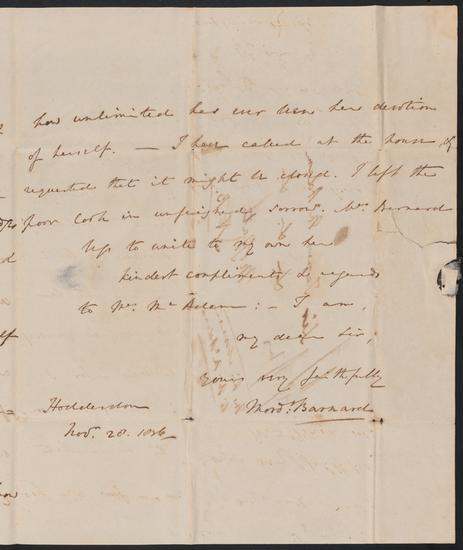 how unlimited has ever been her devotion
of herself. — I have called at the house, &
requested that it might be closed. I left the
poor Cook in unfeigned sorrow. Mrs Barnard
begs to unite to my own her
kindest compliments & regards
to Mrs. McAdam: — I am,
my dear Sir,
yours very faithfully
Mord: Barnard
Hoddesdon
Novr. 28. 1836